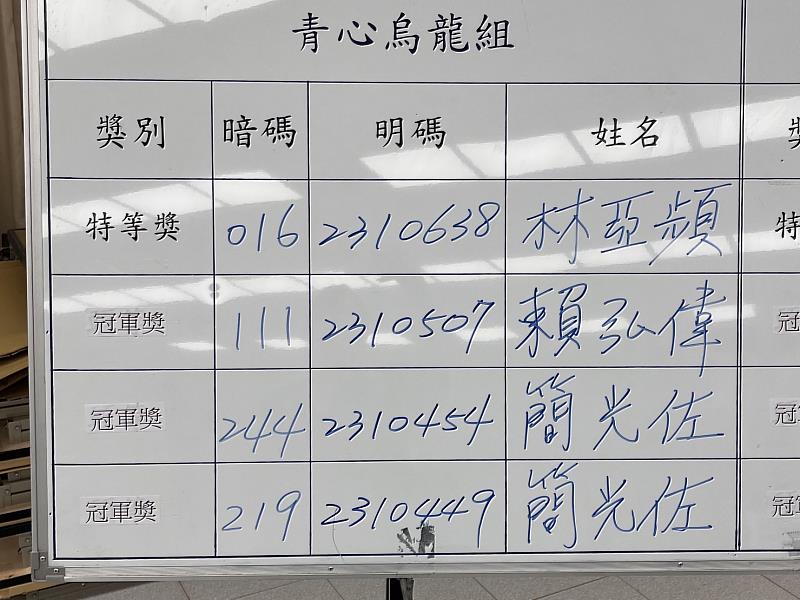 青心烏龍組
獎別 暗碼 明碼 姓名
特等獎 016 2310638 林亞頻
冠軍獎 111 2310507 賴弘偉
冠軍獎 244 2310454 簡光佐
冠軍獎 219 2310449 簡光佐